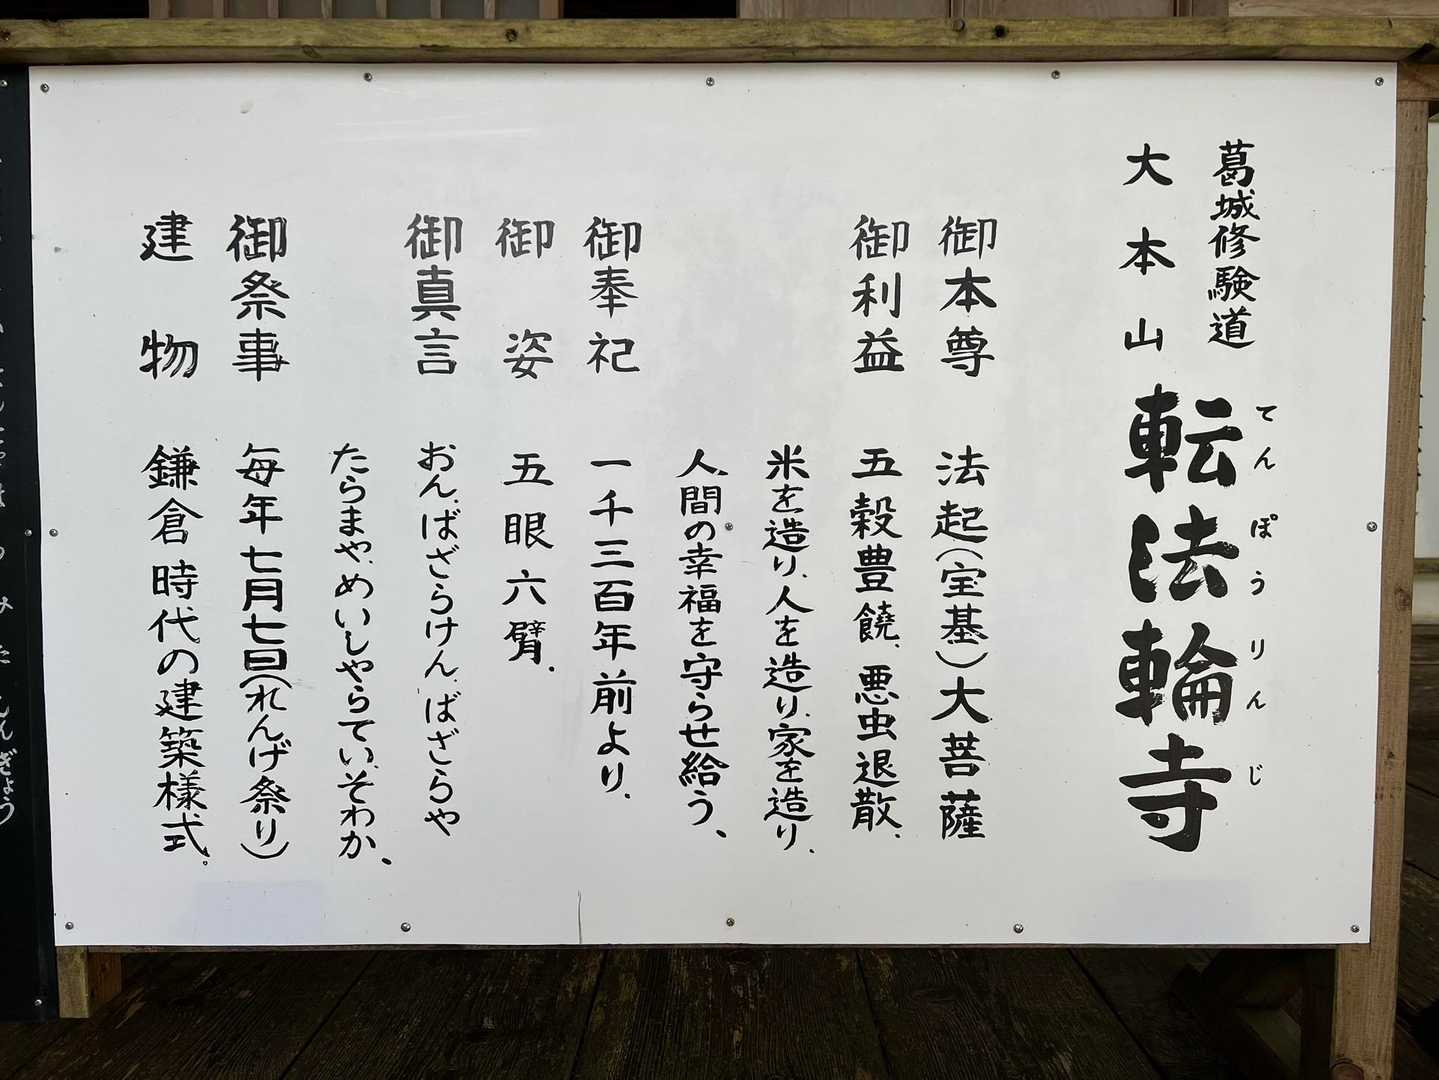 葛城修験道
大本山 転法輪寺
てんぽうりんじ
御本尊 法起(宝基)大菩薩
御利益 五穀豊饒、悪虫退散、
米を造り、人を造り、家を造り、
人間の幸福を守らせ給う、
御奉祀 一千三百年前より、
御姿 五眼六臂、
御真言 おん、ばざらけん、ばざらや
たらまや、めいしやらてい、そわか、
御祭事 毎年七月七日(れんげ祭り)
建物 鎌倉時代の建築様式。